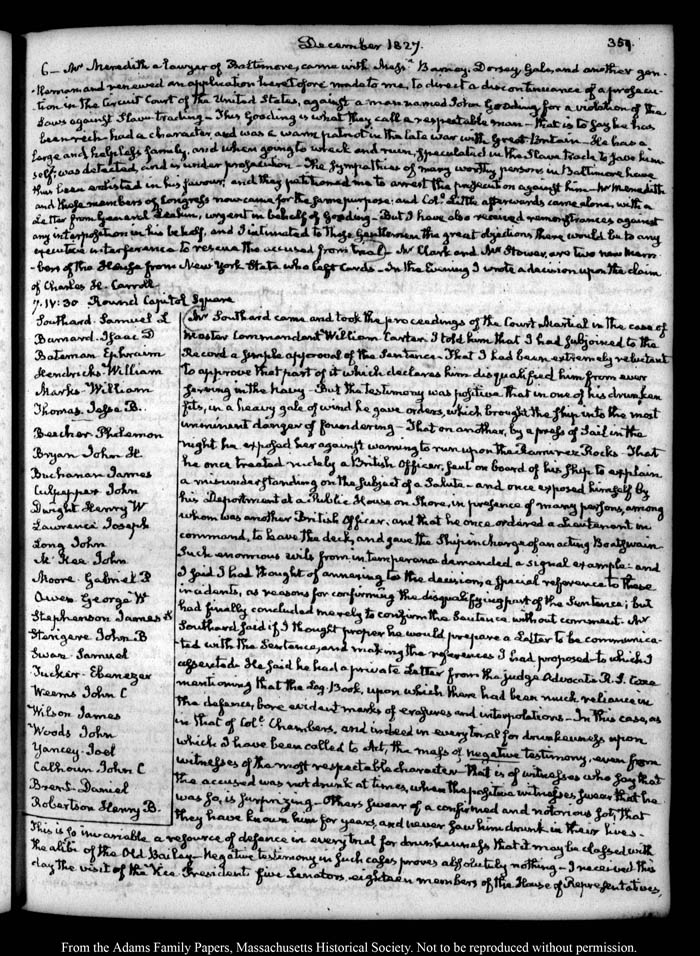 December 1827.
359
6 — Mr Meredith a Lawyer of Baltimore, came with Messrs Barney, Dorsey, Gale, and another gen-
tleman and renewed an application heretofore made to me, to direct a discontinuance of a prosecu-
tion in the Circuit Court of the United States, against a man named John Gooding, for a violation of the
Laws against Slave trading — This Gooding is what they call a respectable man — that is to say he has
been rich — had a character, and was a warm patriot in the late war with Great Britain — He has a
large and helpless family, and when going to wreck and ruin, speculated in the Slave trade, to save him-
self; was detected, and is under prosecution — The sympathies of many worthy persons in Baltimore have
thus been enlisted in his favour, and they petitioned me to arrest the prosecution against him — Mr Meredith
and these members of Congress now came for the same purpose; and Col. Little afterwards came alone, with a
Letter from General urgent in behalf of Gooding — But I have also received remonstrances against
any interposition in his behalf, and I intimated to these Gentlemen the great objections there would be to any
executive interference to rescue the accused from trial — Mr Clark and Mr Stower, are two new Mem-
bers of the House from New York State who left Cards — In the Evening I wrote a decision upon the claim
of Charles H. Carroll
7. IV:30 Round Capitol Square
Southard Samuel L
Barnard Isaac D
Bateman Ephraim
Hendricks William
Marks William
Thomas Jesse B.
Beecher Philemon
Bryan John H.
Buchanan James
Culpepper John
Dwight Henry W
Lawrence Joseph
Long John
Mc Kee John
Moore Gabriel
Owen George W
Stephenson James S
Sterigere John B
Swan Samuel
Tucker Ebenezer
Weems John C
Wilson James
Woods John
Yancey Joel
Calhoun John C
Brent Daniel
Robertson Henry B.
Mr Southard came and took the proceedings of the Court Martial in the case of
Master Commandant William Carter. I told him that I had subjoined to the
Record a simple approval of the Sentence — That I had been extremely reluctant
to approve that part of it which declares him disqualified him from ever
serving in the Navy — But the testimony was positive that in one of his drunken
fits, in a heavy gale of wind he gave orders, which brought the ship into the most
imminent danger of foundering — That on another, by a press of sail in the
night he exposed her against warning to run upon the Rocks — That
he once treated rudely a British Officer, sent on board of his ship to explain
a misunderstanding on the subject of a Salute — and once exposed himself by
his Deportment at a Public House on Shore, in presence of many persons, among
whom was another British Officer; and that he once ordered a Lieutenant in
command, to leave the deck, and gave the ship in charge of an acting Boatswain —
Such enormous evils from intemperance demanded a signal example: and
I said I had thought of annexing to the decision, a special reference to these
incidents, as reasons for confirming the disqualifying part of the Sentence; but
had finally concluded merely to confirm the Sentence without comment — Mr
Southard said if I thought proper he would prepare a Letter to be communica-
ted with the Sentence, and making the references I had proposed — to which I
assented. He said he had a private Letter from the Judge Advocate R. S. Coxe
mentioning that the Log-Book, upon which there had been much reliance in
the defence, bore evident marks of erasures and interpolations — In this case, as
in that of Col. Chambers, and indeed in every trial for drunkenness upon
which I have been called to Act, the mass of negative testimony, even from
witnesses of the most respectable character — that is of witnesses who say that
the accused was not drunk at times, when the positive witnesses swear that he
was so, is surprizing — Others swear of a confirmed and notorious sot, that
they have known him for years, and never saw him drunk in their lives —
This is so invariable a resource of defence in every trial for drunkenness that it may be classed with
the alibi of the Old Bailey — Negative testimony in such cases proves absolutely nothing — I received this
day the visit of the Vice President five Senators, eighteen members of the House of Representatives,
From the Adams Family Papers, Massachusetts Historical Society. Not to be reproduced without permission.